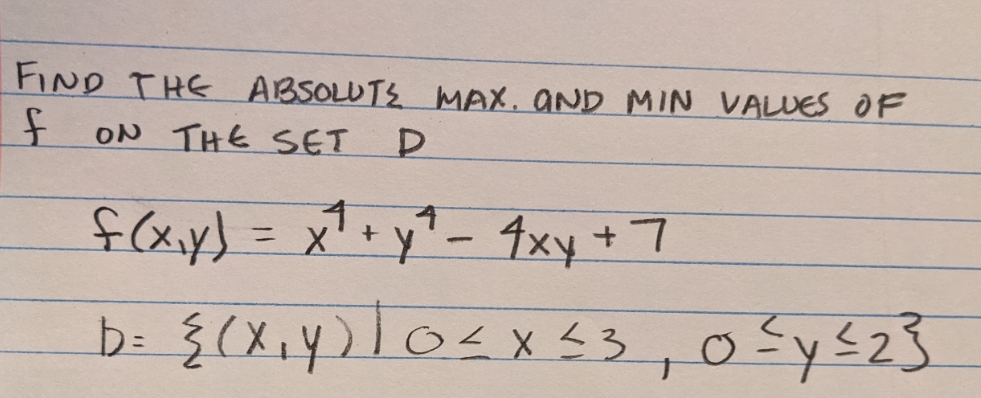 FIND THE ABSOLUTE MAX. AND MIN VALUES OF
f ON THE SET D
f(x,y) = x⁴ + y⁴ - 4xy + 7
D= {(x,y) | 0 ≤ x ≤ 3, 0 ≤ y ≤ 2}